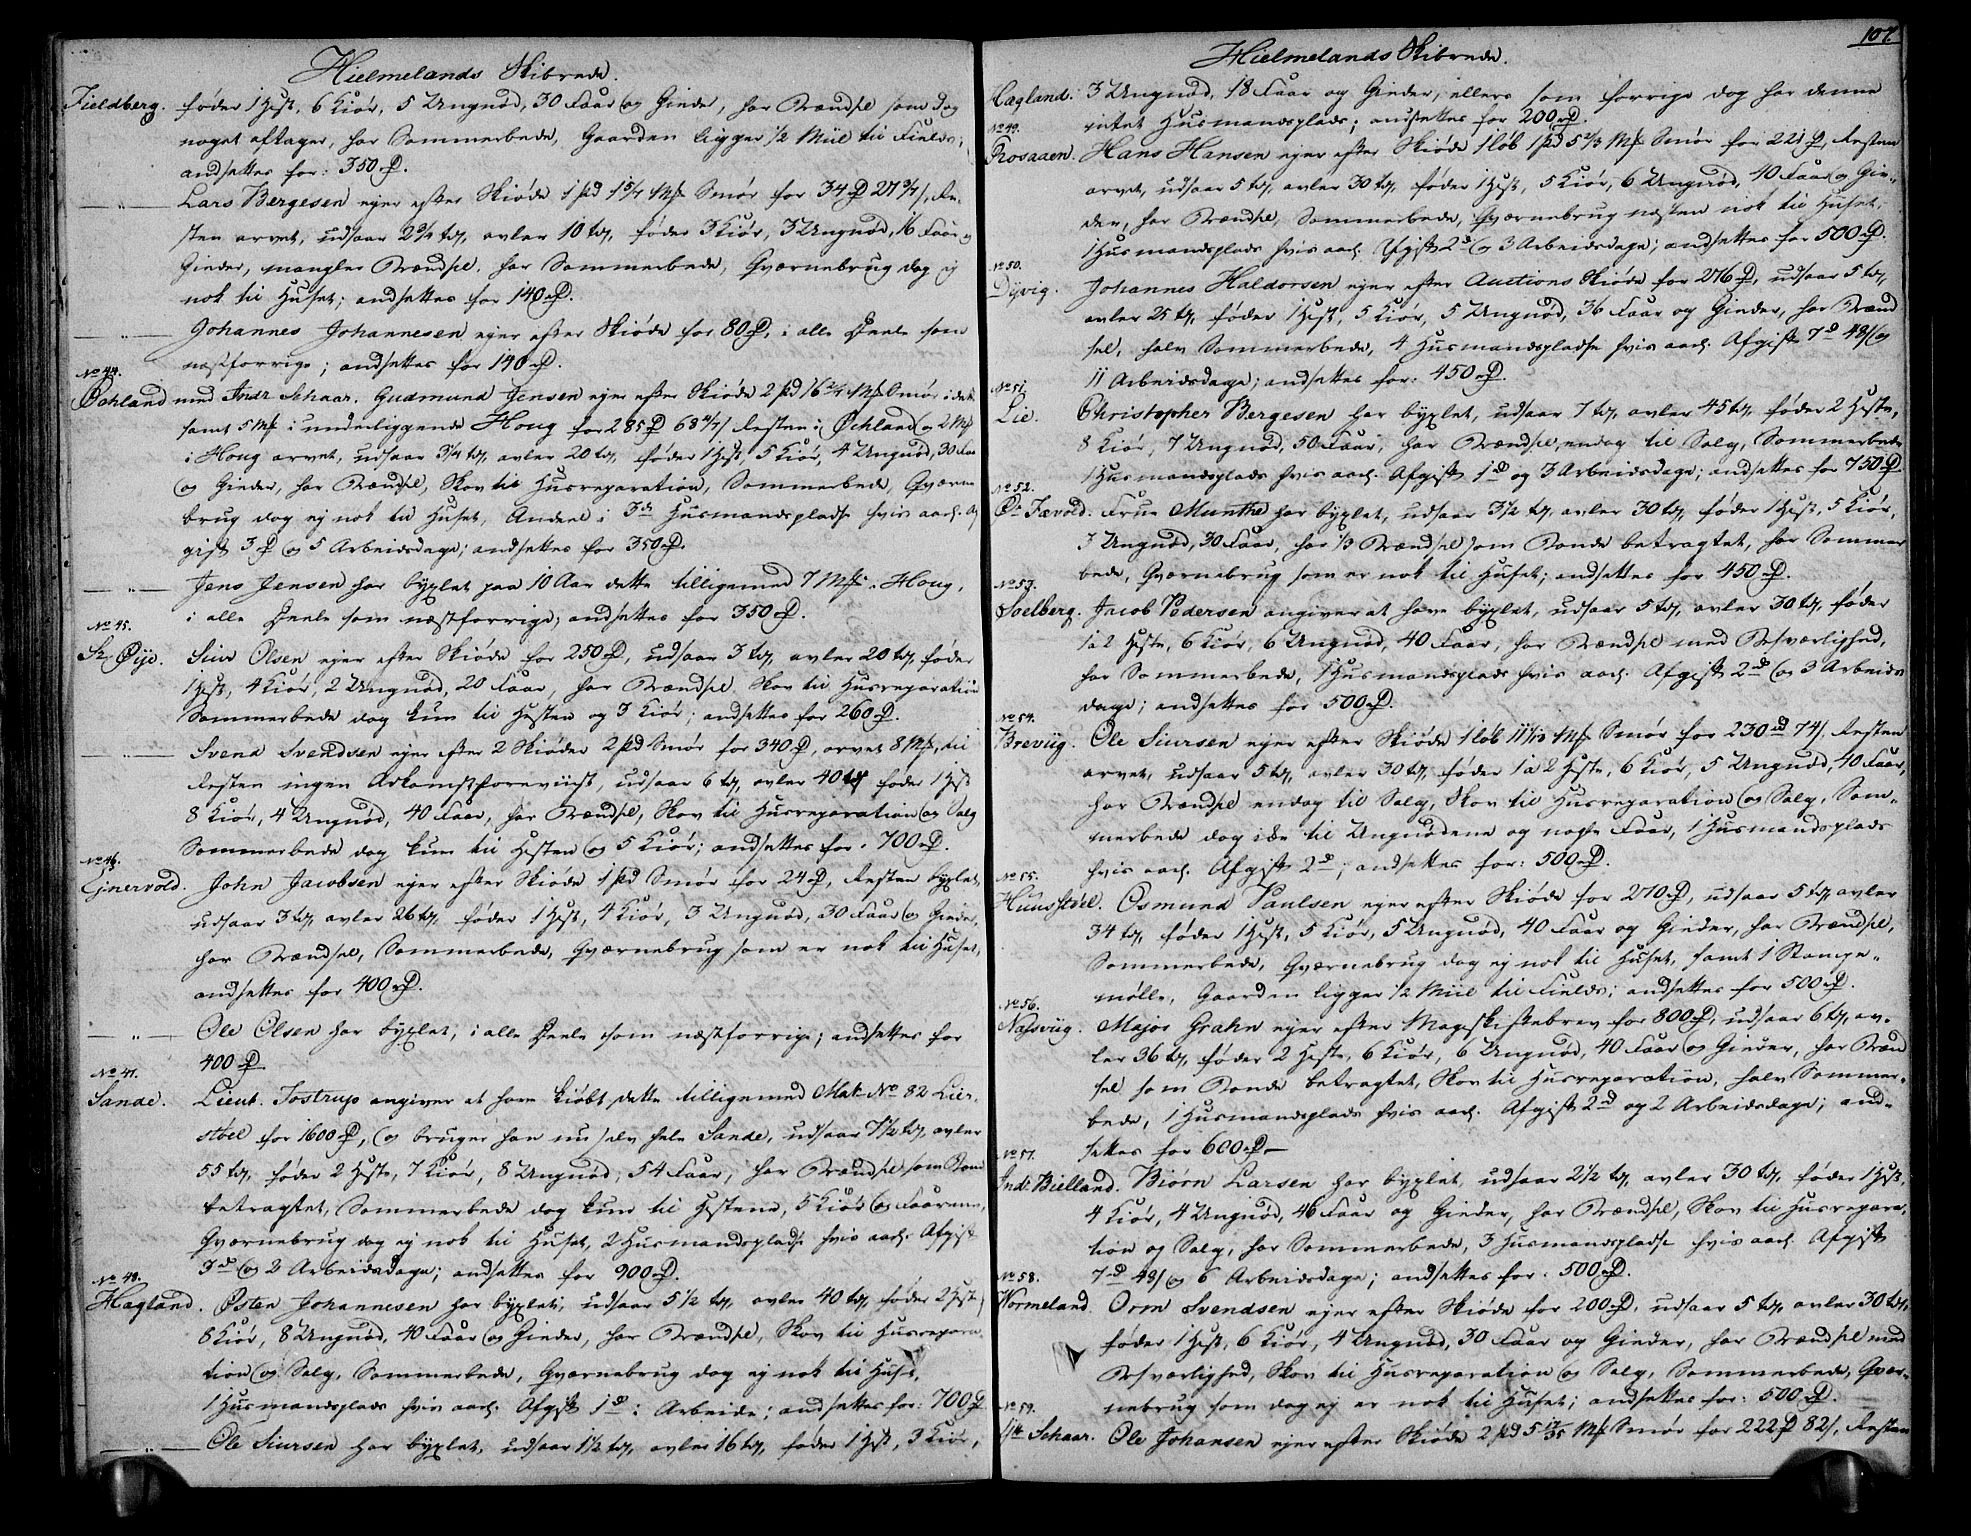 Hielmelands Skibrede.
Fieldberg. føder 1 Hest, 6 Kiør, 5 Ungnød, 30 Faar og Gieder, har Brændsel som dog
noget aftager, har Sommerbede, Gaarden ligger 1/2 Miil til Fields;
andsættes for: 350 rD.
— „ — Lars Bergesen ejer efter Skiøde 1 pd 1 5/7 Mk Smør for 34 rD 27 3/7 s, Re-
sten arvet, udsaar 2 3/4 td, avler 10 td, føder 3 Kiør, 3 Ungnød, 16 Faar og
Gieder, mangler Brændsel, har Sommerbede, Qværnebrug dog ej
nok til Huset; andsættes for 140 rD.
— „ — Johannes Johannesen ejer efter Skiøde for 80 rD, i alle Deele som
næstforrige; andsættes for 140 rD.
No 44.
Øchland med Indr Schaar. Gudmund Jensen ejer efter Skiøde 2 pd 16 2/7 Mk Smør i dette
samt 5 Mk i underliggende Houg for 285 rD 68 4/7 s Resten i Øchland og 2 Mk
i Houg arvet, udsaar 3 1/4 td, avler 20 td, føder 1 Hest, 5 Kiør, 4 Ungnød, 30 Faar
og Gieder, har Brændsel, Skov til Husreparation, Sommerbede, Qværne
brug dog ej nok til Huset, Andeel i 3de Husmandspladse hvis aarl. Af
gift 3 rD og 5 Arbeidsdage; andsættes for 350 rD.
— „ — Jens Jensen har byxlet paa 10 Aar dette tilligemed 7 Mk i Houg,
i alle Deele som næstforrige; andsættes for 350 rD.
No 45.
St. Øije. Siur Olsen ejer efter Skiøde for 250 rD, udsaar 3 td, avler 20 td, føder
1 Hest, 4 Kiør, 2 Ungnød, 20 Faar, har Brændsel, Skov til Husreparation
Sommerbede dog kun til Hesten og 3 Kiør; andsættes for 260 rD.
— „ — Svend Svendsen ejer efter 2 Skiøder 2 pd Smør for 340 rD, arvet 8 Mk, til
Resten ingen Adkomst foreviist, udsaar 6 td, avler 40 td, føder 1 Hest
8 Kiør, 4 Ungnød, 40 Faar, har Brændsel, Skov til Husreparation og Salg
Sommerbede dog kun til Hesten og 5 Kiør; andsættes for: 700 rD.
No 46.
Ginervold. John Jacobsen ejer efter Skiøde 1 pd Smør for 24 rD, Resten byxlet,
udsaar 3 td, avler 26 td, føder 1 Hest, 4 Kiør, 3 Ungnød, 30 Faar og Gieder,
har Brændsel, Sommerbede, Qværnebrug som er nok til Huset,
andsættes for 400 rD.
— „ — Ole Olsen har byxlet, i alle Deele som næstforrige; andsættes for
400 rD
No 47.
Sande. Lieut. Tostrup angiver at have kiøbt dette tilligemed Mat. No 82 Lier-
støel for 1600 rD, og bruger han nu selv hele Sande, udsaar 7 1/2 td, avler
55 td, føder 2 Heste, 7 Kiør, 8 Ungnød, 54 Faar, har Brændsel som Bonde
betragtet, Sommerbede dog kun til Hestene, 5 Kiør og Faarene,
Qværnebrug dog ej nok til Huset, 2 Husmandspladse hvis aarl. Afgift
3 rD og 2 Arbeidsdage; andsættes for 900 rD.
No 48.
Hagland. Østen Johannesen har byxlet, udsaar 5 1/2 td, avler 40 td, føder 2 Heste,
6 Kiør, 8 Ungnød, 40 Faar og Gieder, har Brændsel, Skov til Husrepara-
tion og Salg, Sommerbede, Qværnebrug dog ej nok til Huset,
1 Husmandsplads hvis aarl. Afgift 1 rD i Arbeide; andsættes for: 700 rD
— „ — Ole Siursen har byxlet, udsaar 1 1/2 td, avler 16 td, føder 1 Hest, 3 Kiør,
107.
Hielmelands Skibrede.
Hagland. 3 Ungnød, 18 Faar og Gieder, ellers som forrige dog har denne
intet Husmandsplads; andsættes for 200 rD.
No 49.
Prosaaen. Hans Hansen ejer efter Skiøde 1 løb 1 pd 5 2/3 Mk Smør for 221 rD, Resten
arvet, udsaar 5 td, avler 30 td, føder 1 Hest, 5 Kiør, 6 Ungnød, 40 Faar og Gie-
der, har Brændsel, Sommerbede, Qværnebrug næsten nok til Huset,
1 Husmandsplads hvis aarl. Afgift 2 rD og 3 Arbeidsdage; andsættes for 500 rD.
No 50.
Dijvig. Johannes Haldorsen ejer efter Auctions Skiøde for 276 rD, udsaar 5 td,
avler 25 td, føder 1 Hest, 5 Kiør, 5 Ungnød, 36 Faar og Gieder, har Brænd
sel, halv Sommerbede, 4 Husmandspladse hvis aarl. Afgift 7 rD 48 s og
11 Arbeidsdage; andsættes for: 450 rD.
No 51.
Lie. Christopher Bergesen har byxlet, udsaar 7 td, avler 45 td, føder 2 Heste,
8 Kiør, 7 Ungnød, 50 Faar, har Brændsel, endog til Salg, Sommerbede
1 Husmandsplads hvis aarl. Afgift 1 rD og 3 Arbeidsdage; andsættes for 750 rD.
No 52.
Ø. Tævold. Frue Munthe har byxlet, udsaar 3 1/2 td, avler 30 td, føder 1 Hest, 5 Kiør,
3 Ungnød, 30 Faar, har 1/3 Brændsel som Bonde betragtet, har Sommer
bede, Qværnebrug som er nok til Huset; andsættes for 450 rD.
No 53.
Soelberg. Jacob Pedersen angiver at have byxlet, udsaar 5 td, avler 30 td, føder
1 a 2 Heste, 6 Kiør, 6 Ungnød, 40 Faar, har Brændsel med Besværlighed,
har Sommerbede, 1 Husmandsplads hvis aarl. Afgift 2 rD og 3 Arbeids
dage; andsættes for 500 rD.
No 54.
Breviig. Ole Siursen ejer efter Skiøde 1 løb 11 1/10 Mk Smør for 230 rD 74 s, Resten
arvet, udsaar 5 td, avler 30 td, føder 1 a 2 Heste, 6 Kiør, 5 Ungnød, 40 Faar,
har Brændsel endog til Salg, Skov til Husreparation og Salg, Som-
merbede dog ikke til Ungnødene og nogle Faar, 1 Husmandsplads
hvis aarl. Afgift 2 rD; andsættes for: 500 rD.
No 55.
Huusstøel. Osmund Paulsen ejer efter Skiøde for 270 rD, udsaar 5 td, avler
34 td, føder 1 Hest, 5 Kiør, 5 Ungnød, 40 Faar og Gieder, har Brændsel,
Sommerbede, Qværnebrug dog ej nok til Huset, samt 1 Stampe-
mølle, Gaarden ligger 1/2 Miil til Fields; andsættes for 500 rD.
No 56.
Nesviig. Major Grahn ejer efter Mageskiftebrev for 800 rD, udsaar 6 td, av-
ler 36 td, føder 2 Heste, 6 Kiør, 6 Ungnød, 40 Faar og Gieder, har Brænd
sel som Bonde betragtet, Skov til Husreparation, halv Sommer-
bede, 1 Husmandsplads hvis aarl. Afgift 2 rD og 2 Arbeidsdage; and-
sættes for 600 rD.
No 57.
Indr Bielland. Biørn Larsen har byxlet, udsaar 2 1/2 td, avler 30 td, føder 1 Hest,
4 Kiør, 4 Ungnød, 46 Faar og Gieder, har Brændsel, Skov til Husrepara-
tion og Salg, har Sommerbede, 3 Husmandspladse hvis aarl. Afgift
7 rD 48 s og 6 Arbeidsdage; andsættes for: 500 rD.
No 58.
Wormeland. Orm Svendsen ejer efter Skiøde for 200 rD, udsaar 5 td, avler 30 td,
føder 1 Hest, 6 Kiør, 4 Ungnød, 30 Faar og Gieder, har Brændsel med
Besværlighed, Skov til Husreparation og Salg, Sommerbede, Qvær-
nebrug som dog ej er nok til Huset; andsættes for: 500 rD.
No 59.
Ytr Schaar. Ole Johansen ejer efter Skiøde 2 pd 5 17/35 Mk Smør for 222 rD 82 s, Resten